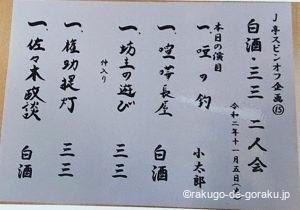 J亭スピンオフ企画⑮
白酒・三三 二人会
令和二年十一月五日(木)
本日の演目
一、唖の釣 小太郎
一、喧嘩長屋 白酒
一、坊主の遊び 三三
仲入り
一、権助提灯 三三
一、佐々木政談 白酒
©rakugo-de-goraku.jp